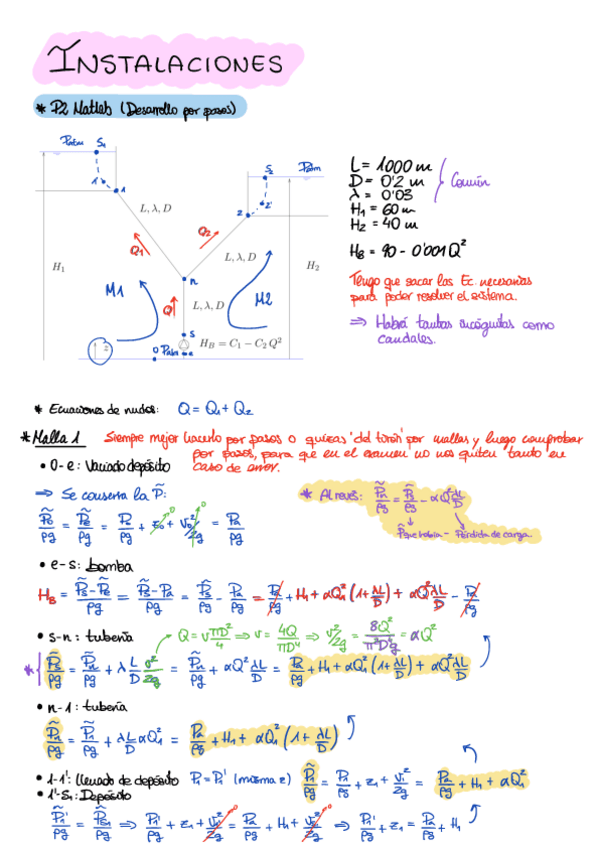 INSTALACIONES
* P2 Matlab (Desarrollo por pasos)
Patm S₁
1' 1
S₂ Patm
2 2'
L, λ, D
Q₁
Q₂
L, λ, D
H₁
H₂
M1
n
M2
Q
L, λ, D
S
H_B = C₁ − C₂ Q²
z
0 Patm e
L = 1000 m
D = 0'2 m
λ = 0'03
Común
H₁ = 60 m
H₂ = 40 m
H_B = 90 - 0'001 Q²
Tengo que sacar las Ec. necesarias
para poder resolver el sistema.
⇒ Habrá tantas incógnitas como
caudales.
* Ecuaciones de nudos: Q = Q₁ + Q₂
* Malla 1 Siempre mejor hacerlo por pasos o quizas 'del tirón' por mallas y luego comprobar
por pasos, para que en el examen no nos quiten tanto en
caso de error.
• 0-e: Vaciado depósito
⇒ Se conserva la P̃:
P̃₀/ρg = P̃e/ρg = Pa/ρg + z₀ + v₀²/2g = Pa/ρg
* Al revés: P̃n/ρg = P̃s/ρg - αQ² λL/D
P̃ que había - Pérdida de carga.
• e-s: bomba
H_B = (P̃s - P̃e)/ρg = (P̃s - Pa)/ρg = P̃s/ρg - Pa/ρg = Pa/ρg + H₁ + αQ₁² (1 + λL/D) + αQ² λL/D - Pa/ρg
• s-n: tubería Q = v πD²/4 ⇒ v = 4Q/πD² ⇒ v²/2g = 8Q²/π²D⁴g = αQ²
* { P̃s/ρg = P̃n/ρg + λ L/D v²/2g = P̃n/ρg + αQ² λL/D = Pa/ρg + H₁ + αQ₁² (1 + λL/D) + αQ² λL/D
• n-1: tubería
P̃n/ρg = P̃₁/ρg + λL/D αQ₁² = Pa/ρg + H₁ + αQ₁² (1 + λL/D)
• 1-1': llenado de depósito P₁ = P₁' (misma z) P̃₁/ρg = P₁/ρg + z₁ + v₁²/2g = Pa/ρg + H₁ + αQ₁²
• 1'-S₁: Depósito
P̃₁'/ρg = P̃s₁/ρg ⇒ P₁'/ρg + z₁ + v₁'²/2g = Pa/ρg + H₁ + v²/2g ⇒ P₁'/ρg + z₁ = Pa/ρg + H₁